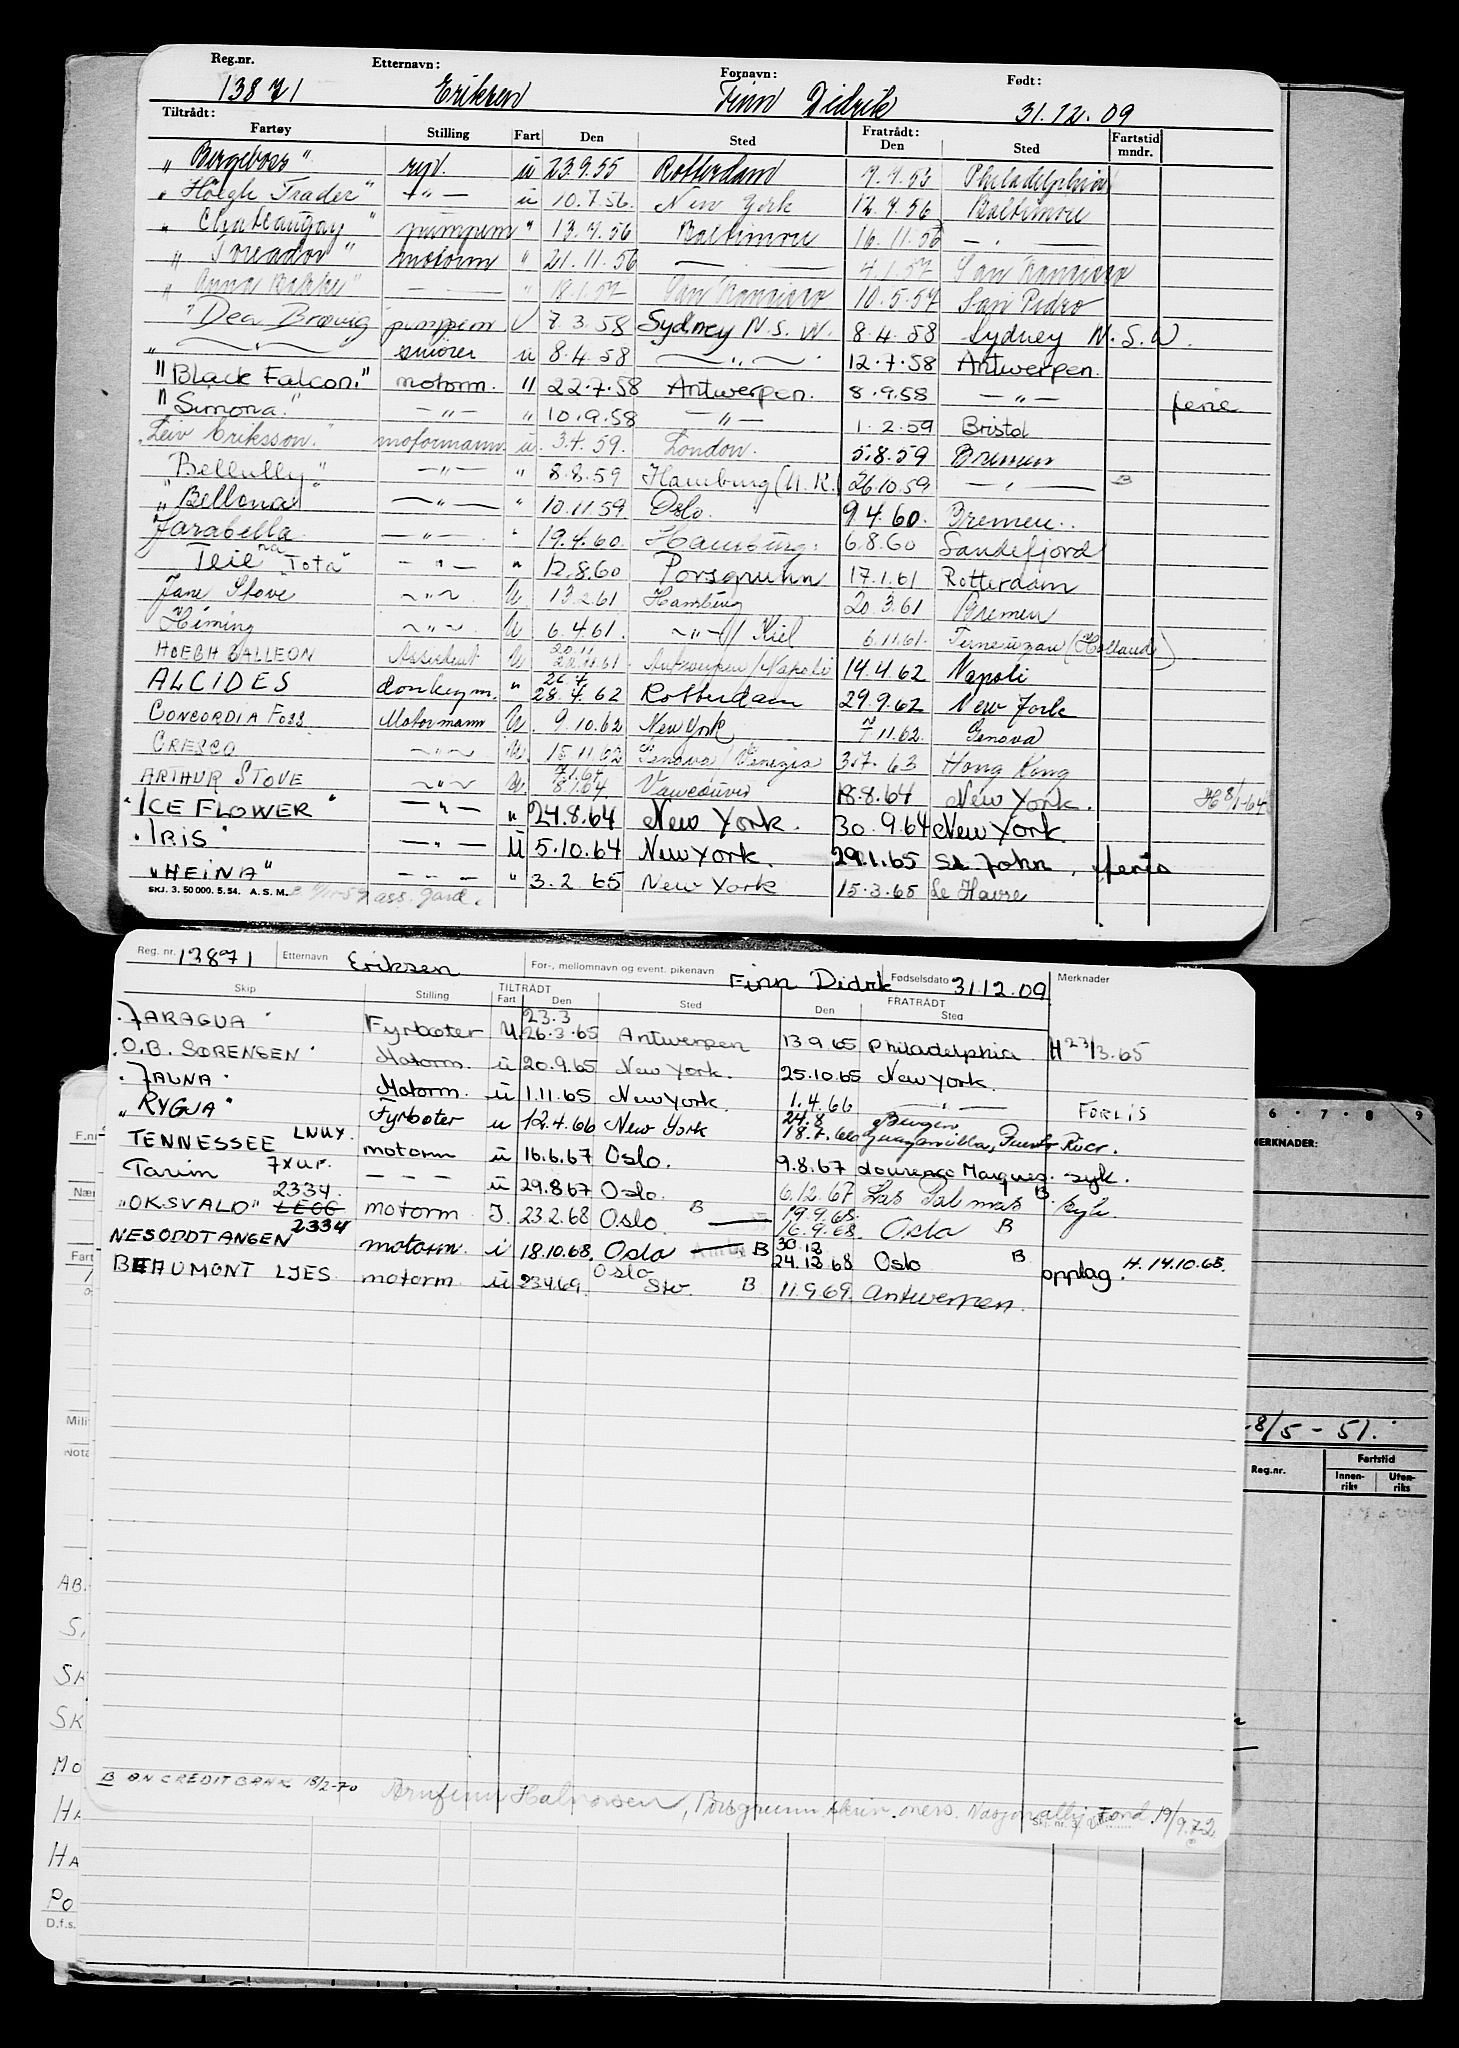 Reg.nr. Etternavn: Fornavn: Født:
13871 Eriksen Finn Didrik 31.12.09
Tiltrådt: Fratrådt: Fartstid
Fartøy Stilling Fart Den Sted Den Sted mndr.
"Bergeboss" ryd. u 23.9.55 Rotterdam Philadelphia
"Höegh Trader" - " - u 10.7.56. New York 12.7.56 Baltimore
pumpem " 13.7.56 Baltimore 16.11.56 - " -
"Toreador" motorm " 21.11.56 - 4.1.57 San Francisco
"Anna Bakke" - " 18.1.57 San Francisco 10.5.57 San Pedro
"Dea Brøvig pumpem 7.3.58 Sydney N.S.W. 8.4.58 Sydney N.S.W.
" smører u 8.4.58 - " - 12.7.58 Antwerpen.
"Black Falcon." motorm. " 22.7.58 Antwerpen. 8.9.58 - " - ferie
"Simona." - " - " 10.9.58 - " - 1.2.59 Bristol
"Leiv Eriksson." motormann u. 3.4.59. London. 5.8.59 Bremen
"Bellully" - " - " 8.8.59 Hamburg (U.K.) 26.10.59 - " - B
"Bellona" - " - " 10.11.59 Oslo. 9.4.60. Bremen..
Jarabella - " - " 19.4.60. Hamburg. 6.8.60 Sandefjord
na
Tota" - " - " 12.8.60 Porsgrunn 17.1.61 Rotterdam
Jane Stove - " - U 13.2.61 Hamburg 20.3.61 Bremen
Heming - " - U 6.4.61. - " - / Kiel 6.11.61. Terneuzan (Holland)
20.11
HOEGH GALLEON Assistent U 22.11.61 Antwerpen / Napoli 14.4.62 Napoli
26.4
ALCIDES donkeym. " 28.4.62 Rotterdam 29.9.62 New York
CONCORDIA FOSS Motormann U. 9.10.62 New York 7.11.62. Genova
CRESCO - " - U. 15.11.62 Genova / Venezia 3.7.63 Hong Kong
7.1.64
ARTHUR STOVE - " - U. 8.1.64. Vancouver 18.8.64 New York. H 8/1-64
"ICE FLOWER" - " - " 24.8.64 New York. 30.9.64 New York
"IRIS" - " - U 5.10.64 New York. 29.1.65 St. John, ferie
"HEINA" - " - " 3.2.65 New York 15.3.65 Le Havre
SKJ. 3. 50 000. 5. 54. A.S.M. ass. gard.
Reg. nr. 13871 Etternavn Eriksen For-, mellomnavn og event. pikenavn Finn Didrk Fødselsdato 31.12.09 Merknader
TILTRÅDT FRATRÅDT
Skip Stilling Fart Den Sted Den Sted
23.3
"JARAGUA" Fyrbøter U. 26.3.65 Antwerpen 13.9.65 Philadelphia H 23/3.65
"O.B. SØRENSEN" Motorm. u 20.9.65 New York. 25.10.65 New York.
"JAUNA" Motorm. u 1.11.65 New York. 1.4.66 - " -
24.8 Bergen
"RYGJA" Fyrbøter u 12.4.66 New York 18.7.66 Guayanilla, Puerto Rico. FORLIS
TENNESSEE LNUY. motorm u 16.6.67 Oslo. 9.8.67 Lourenco Marques. syk.
Tarim 7XUF. - - - u 29.8.67 Oslo. 6.12.67 Las Palmas B. syk.
2334. 19.9.68.
"OKSVALD" LEGG motorm J. 23.2.68 Oslo B 16.9.68 Oslo B
2334 30.12
NESODDTANGEN motorm. i 18.10.68. Oslo B 24.12.68 Oslo B opplag. H. 14.10.68.
Oslo
BEAUMONT LJES motorm u 23.4.69. Stv. B 11.9.69. Antwerpen.
6 · 7 · 8 · 9
MERKNADER:
F.nr
Nær
Fart
Mili
Nota
8/5 - 51.
Reg.nr. Fartstid
Innen- riks Uten- riks
AB.
SK
SK
MO
HA
HA
PO
D.f.s.
B DN CREDITBANK 18/2-70 Arnfinn Halvorsen, Porsgrunn, Nasjonalhj. Fond 19/9.72
Skj. nr. 3.